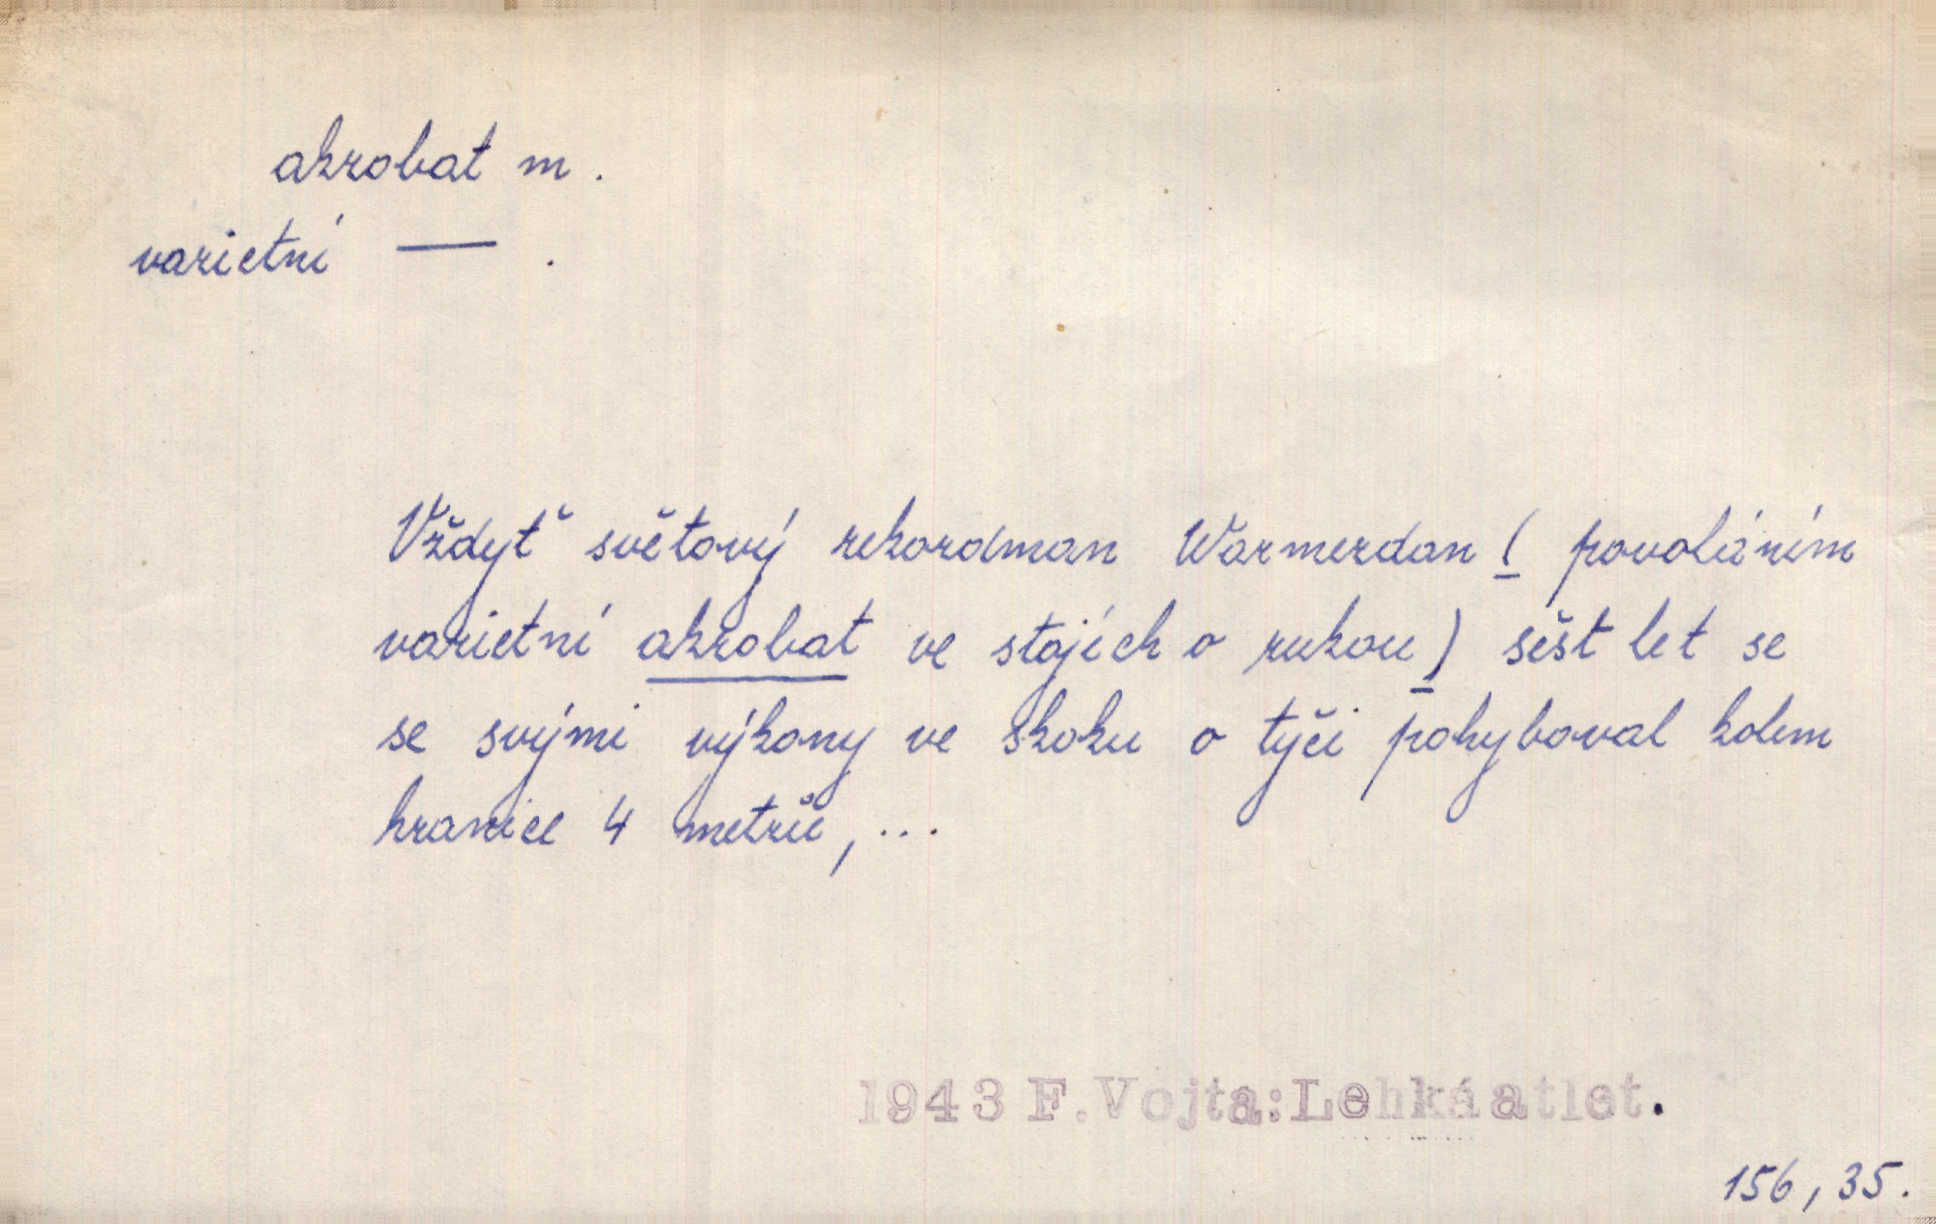 akrobat m.
varietní — .
Vždyť světový rekordman Warmerdan ( povoláním
varietní akrobat ve stojích o rukou) šest let se
se svými výkony ve skoku o tyči pohyboval kolem
hranice 4 metrů, ...
1943 F.Vojta:Lehká atlet.
156, 35.